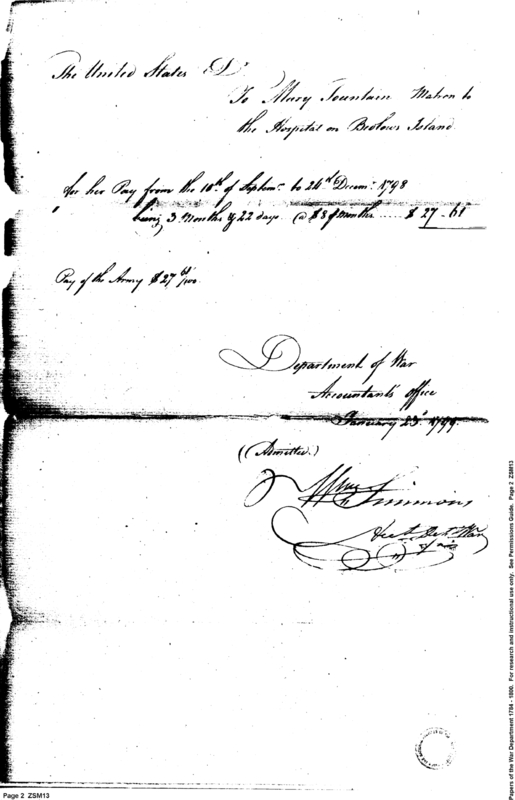 The United States Dr
To Mary Fountain Matron to
the Hospital on Bedlows Island
for her Pay from the 10th of Septemr to 24th Decemr 1798
being 3 Months & 22 days @ $8 months ..... $ 27 - 61
Pay of the Army $ 27 61/100
Department of War
Accountants office
January 23d 1799
(Admitted.)
Wm Simmons
Acct. Dept War
Page 2 ZSM13
Papers of the War Department 1784 - 1800. For research and instructional use only. See Permissions Guide. Page 2 ZSM13